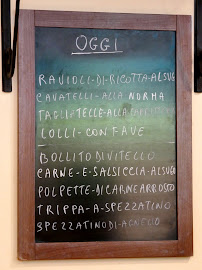 OGGI
RAVIOLI-DI-RICOTTA-AL SUGO
CAVATELLI-ALLA NORMA
TAGLIATELLE-ALLA
LOLLI-CON FAVE
BOLLITO DI VITELLO
CARNE-E-SALSICCIA-AL SUGO
POLPETTE-DI CARNE ARROSTO
TRIPPA-A-SPEZZATINO
SPEZZATINO DI-AGNELLO